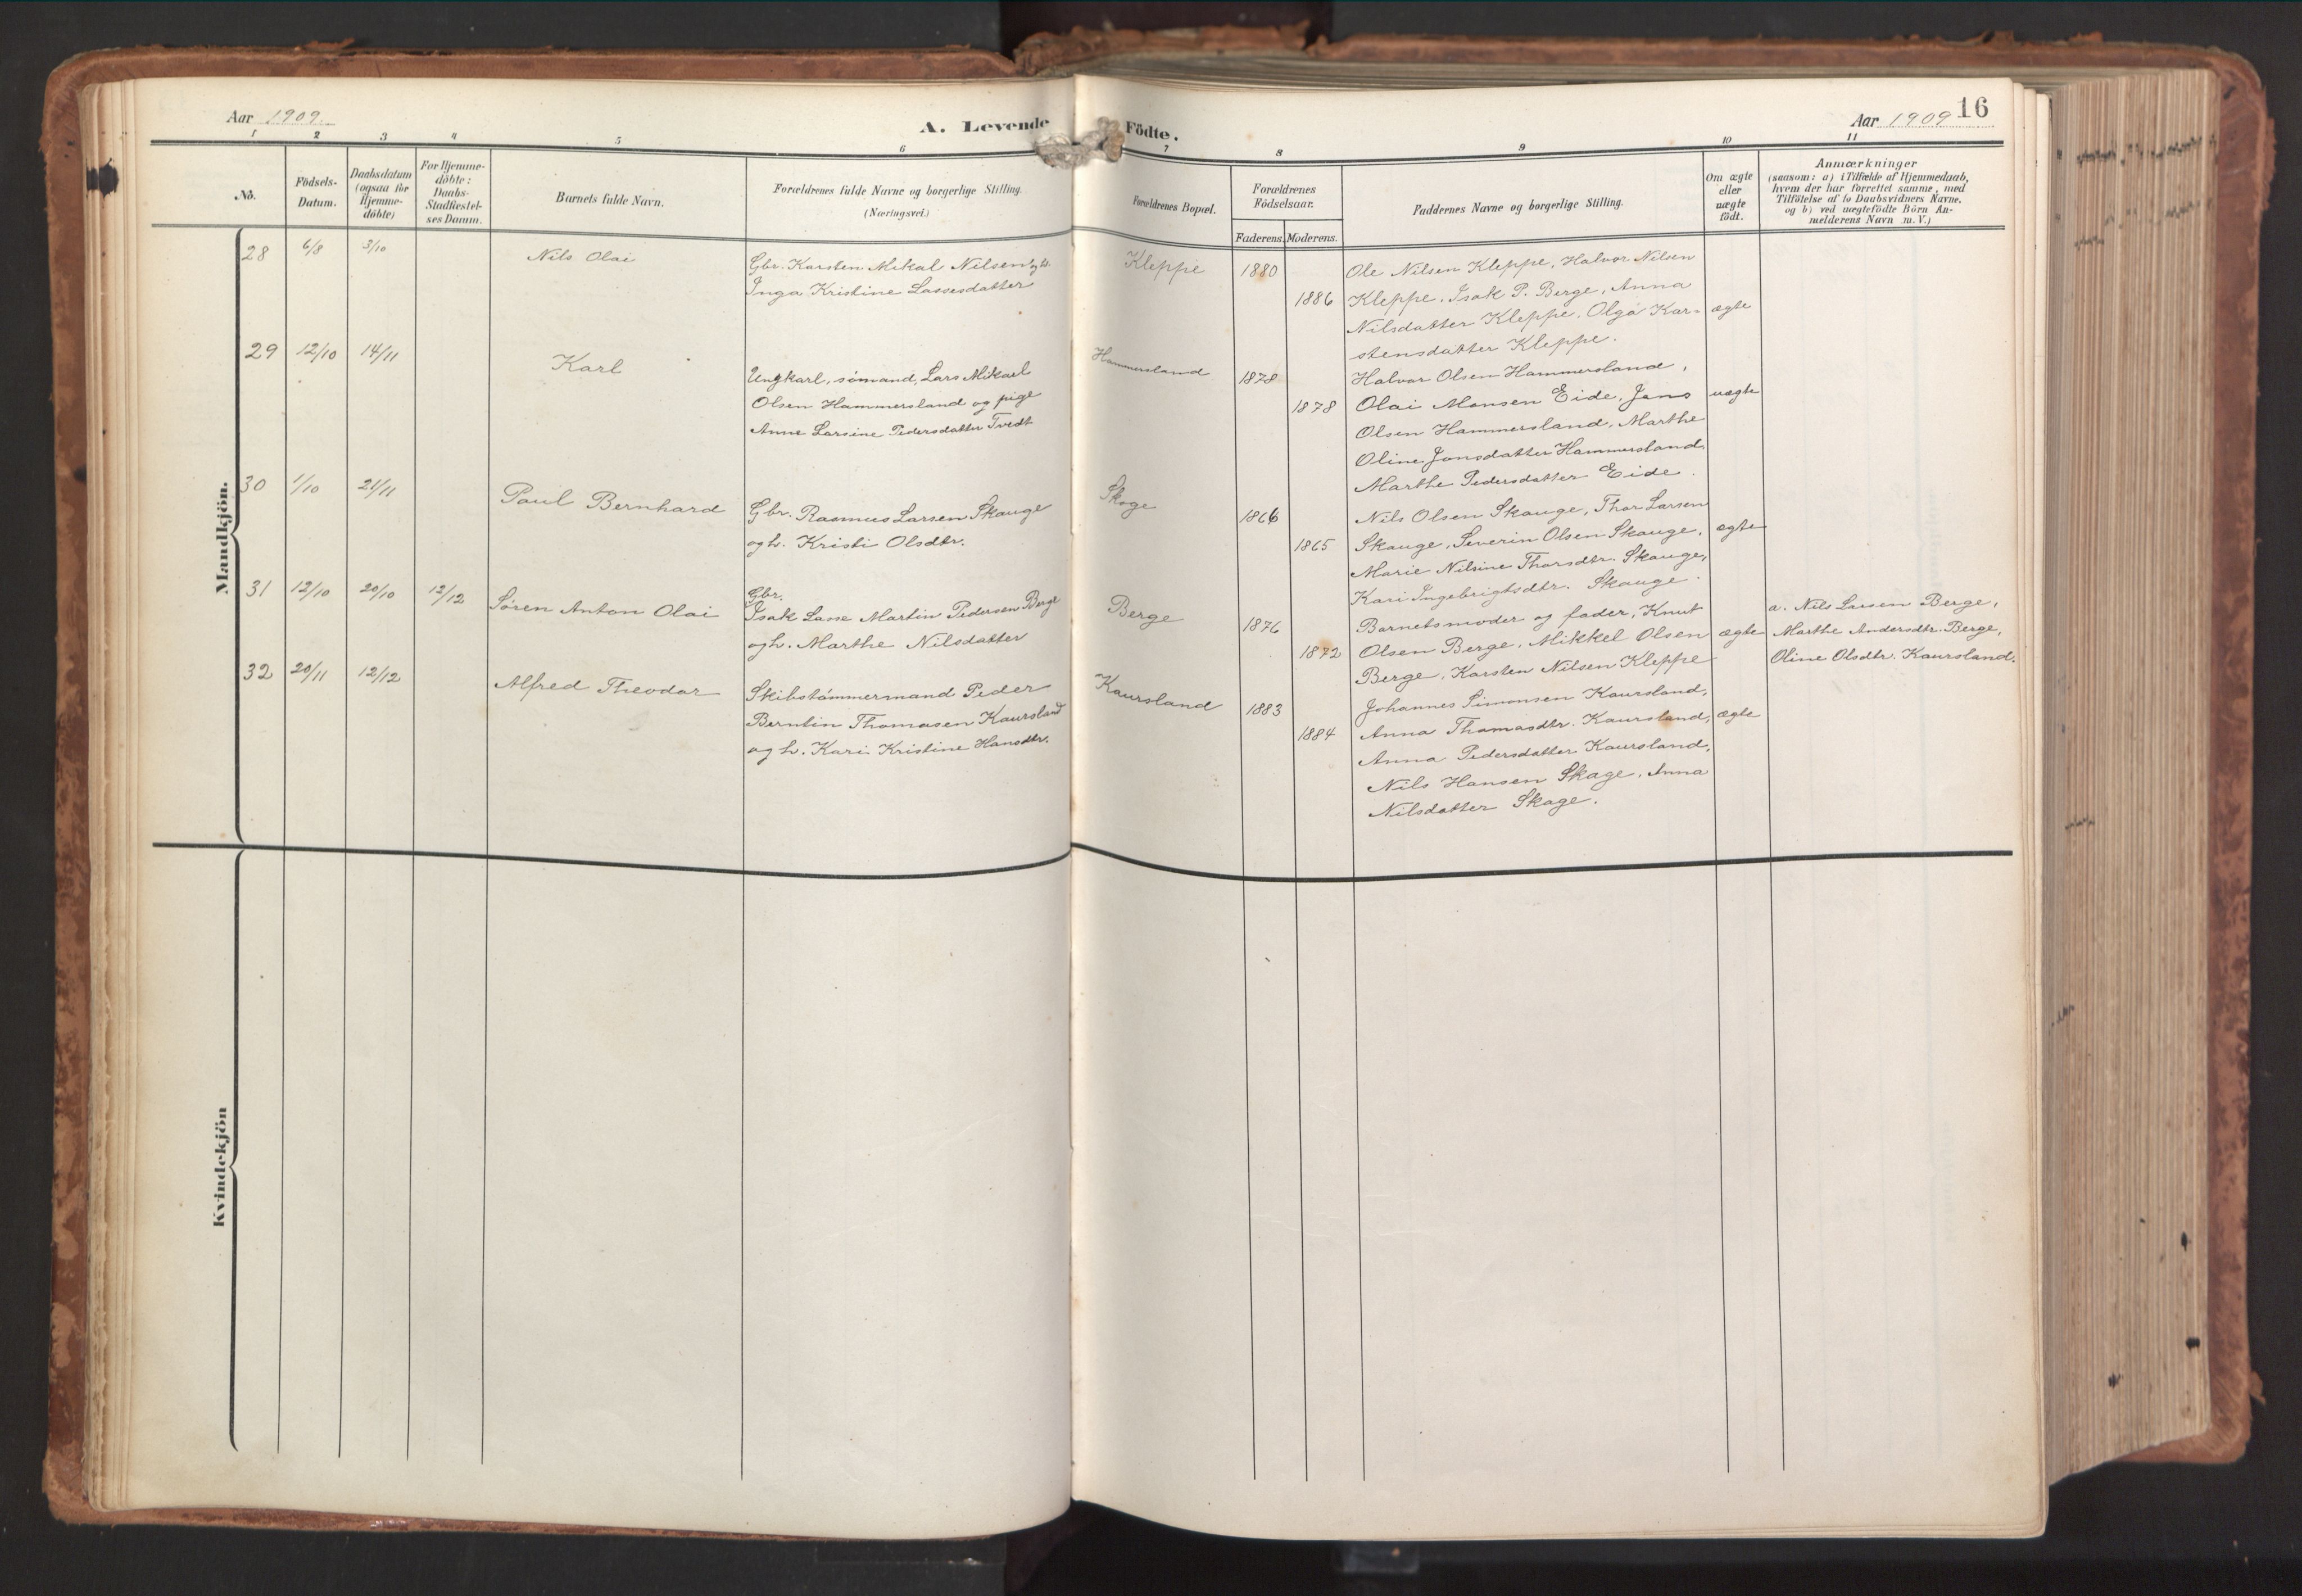 Aar 1909.
A. Levende Födte.
Aar 1909
16
1 2 3 4 5 6 7 8 9 10 11
No.
Födsels-
Datum.
Daabsdatum
(ogsaa for
Hjemme-
döbte)
For Hjemme-
döbte:
Daabs-
Stadfæstel-
ses Datum.
Barnets fulde Navn.
Forældrenes fulde Navne og borgerlige Stilling.
(Næringsvei.)
Forældrenes Bopæl.
Forældrenes
Födselsaar.
Faderens. Moderens.
Faddernes Navne og borgerlige Stilling.
Om ægte
eller
uægte
födt.
Anmærkninger
(saasom: a) i Tilfælde af Hjemmedaab,
hvem der har forrettet samme, med
Tilföielse af to Daabsvidners Navne.
og b) ved uægtefödte Börn An-
melderens Navn m. V.)
Mandkjön.
28 6/8 3/10 Nils Olai
Gbr. Karsten Mikal Nilsen og h.
Inga Kristine Lassesdatter
Kleppe
1880
1886
Ole Nilsen Kleppe, Halvor Nilsen
Kleppe, Isak P. Berge, Anna
Nilsdatter Kleppe, Olga Kar-
stensdatter Kleppe.
ægte
29 12/10 14/11 Karl
Ungkarl, sømand, Lars Mikael
Olsen Hammersland og pige
Anne Larsine Pedersdatter Tvedt
Hammersland
1878
1878
Halvor Olsen Hammersland,
Olai Monsen Eide, Jens
Olsen Hammersland, Marthe
Oline Jonsdatter Hammersland
Marthe Pedersdatter Eide.
uægte
30 1/10 21/11 Paul Bernhard
Gbr. Rasmus Larsen Skauge
og h. Kristi Olsdtr.
Skoge
1866
1865
Nils Olsen Skauge, Thor Larsen
Skauge, Severin Olsen Skauge,
Marie Nilsine Thorsdtr. Skauge,
Kari Ingebrigtsdtr. Skauge.
ægte
31 12/10 20/10 12/12 Søren Anton Olai
Gbr.
Isak Lasse Martin Pedersen Berge
og h. Marthe Nilsdatter
Berge
1876
1872
Barnets moder og fader, Knut
Olsen Berge, Mikkel Olsen
Berge, Karsten Nilsen Kleppe
ægte
a. Nils Larsen Berge,
Marthe Andersdtr. Berge,
Oline Olsdtr. Kaursland.
32 20/11 12/12 Alfred Theodor
Skibstømmermand Peder
Berntin Thomasen Kaursland
og h. Kari Kristine Hansdtr.
Kaursland
1883
1884
Johannes Simonsen Kaursland,
Anna Thomasdtr. Kaursland,
Anna Pedersdatter Kaursland,
Nils Hansen Skage, Anna
Nilsdatter Skage.
ægte
Kvindekjön